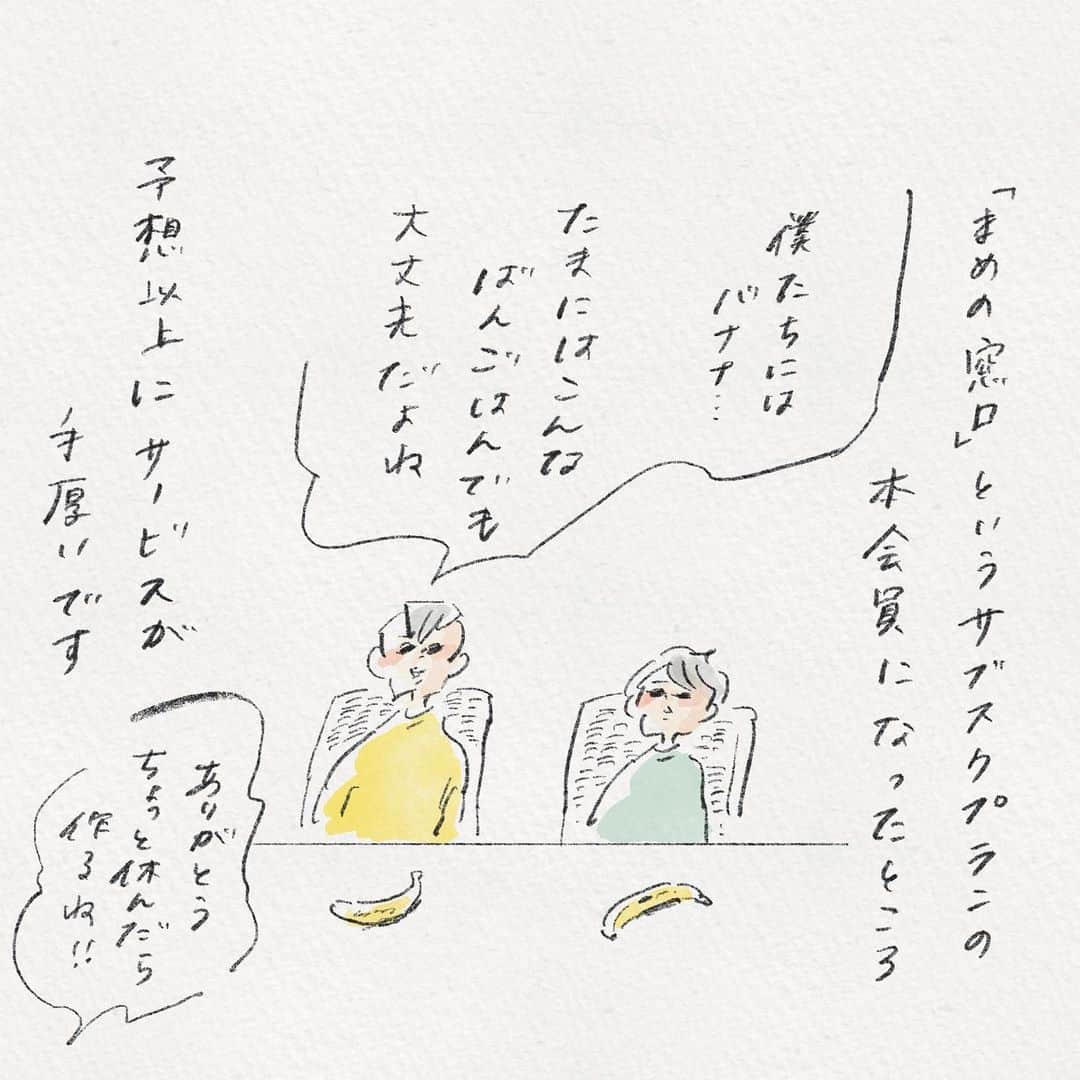 「まめの窓口」というサブスクプランの
本会員になったところ
僕たちには
バナナ…
たまにはこんな
ばんごはんでも
大丈夫だよね
予想以上にサービスが
手厚いです
ありがとう
ちょっと休んだら
作るね!!